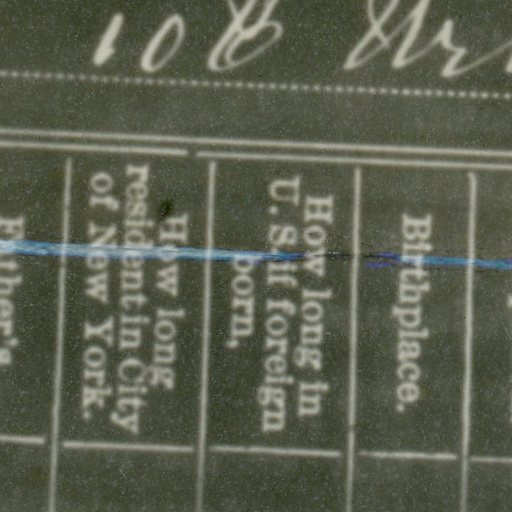 108
Birthplace.
How long in
U.S. if foreign
born,
How long
resident in City
of New York.
Father's